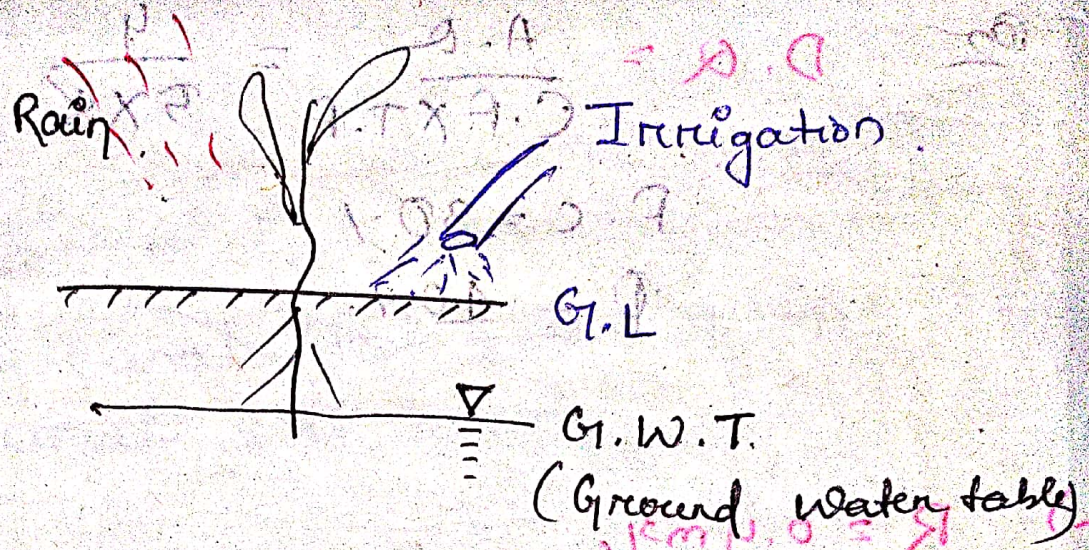 Rain
Irrigation
G.L
G.W.T.
(Ground water table)